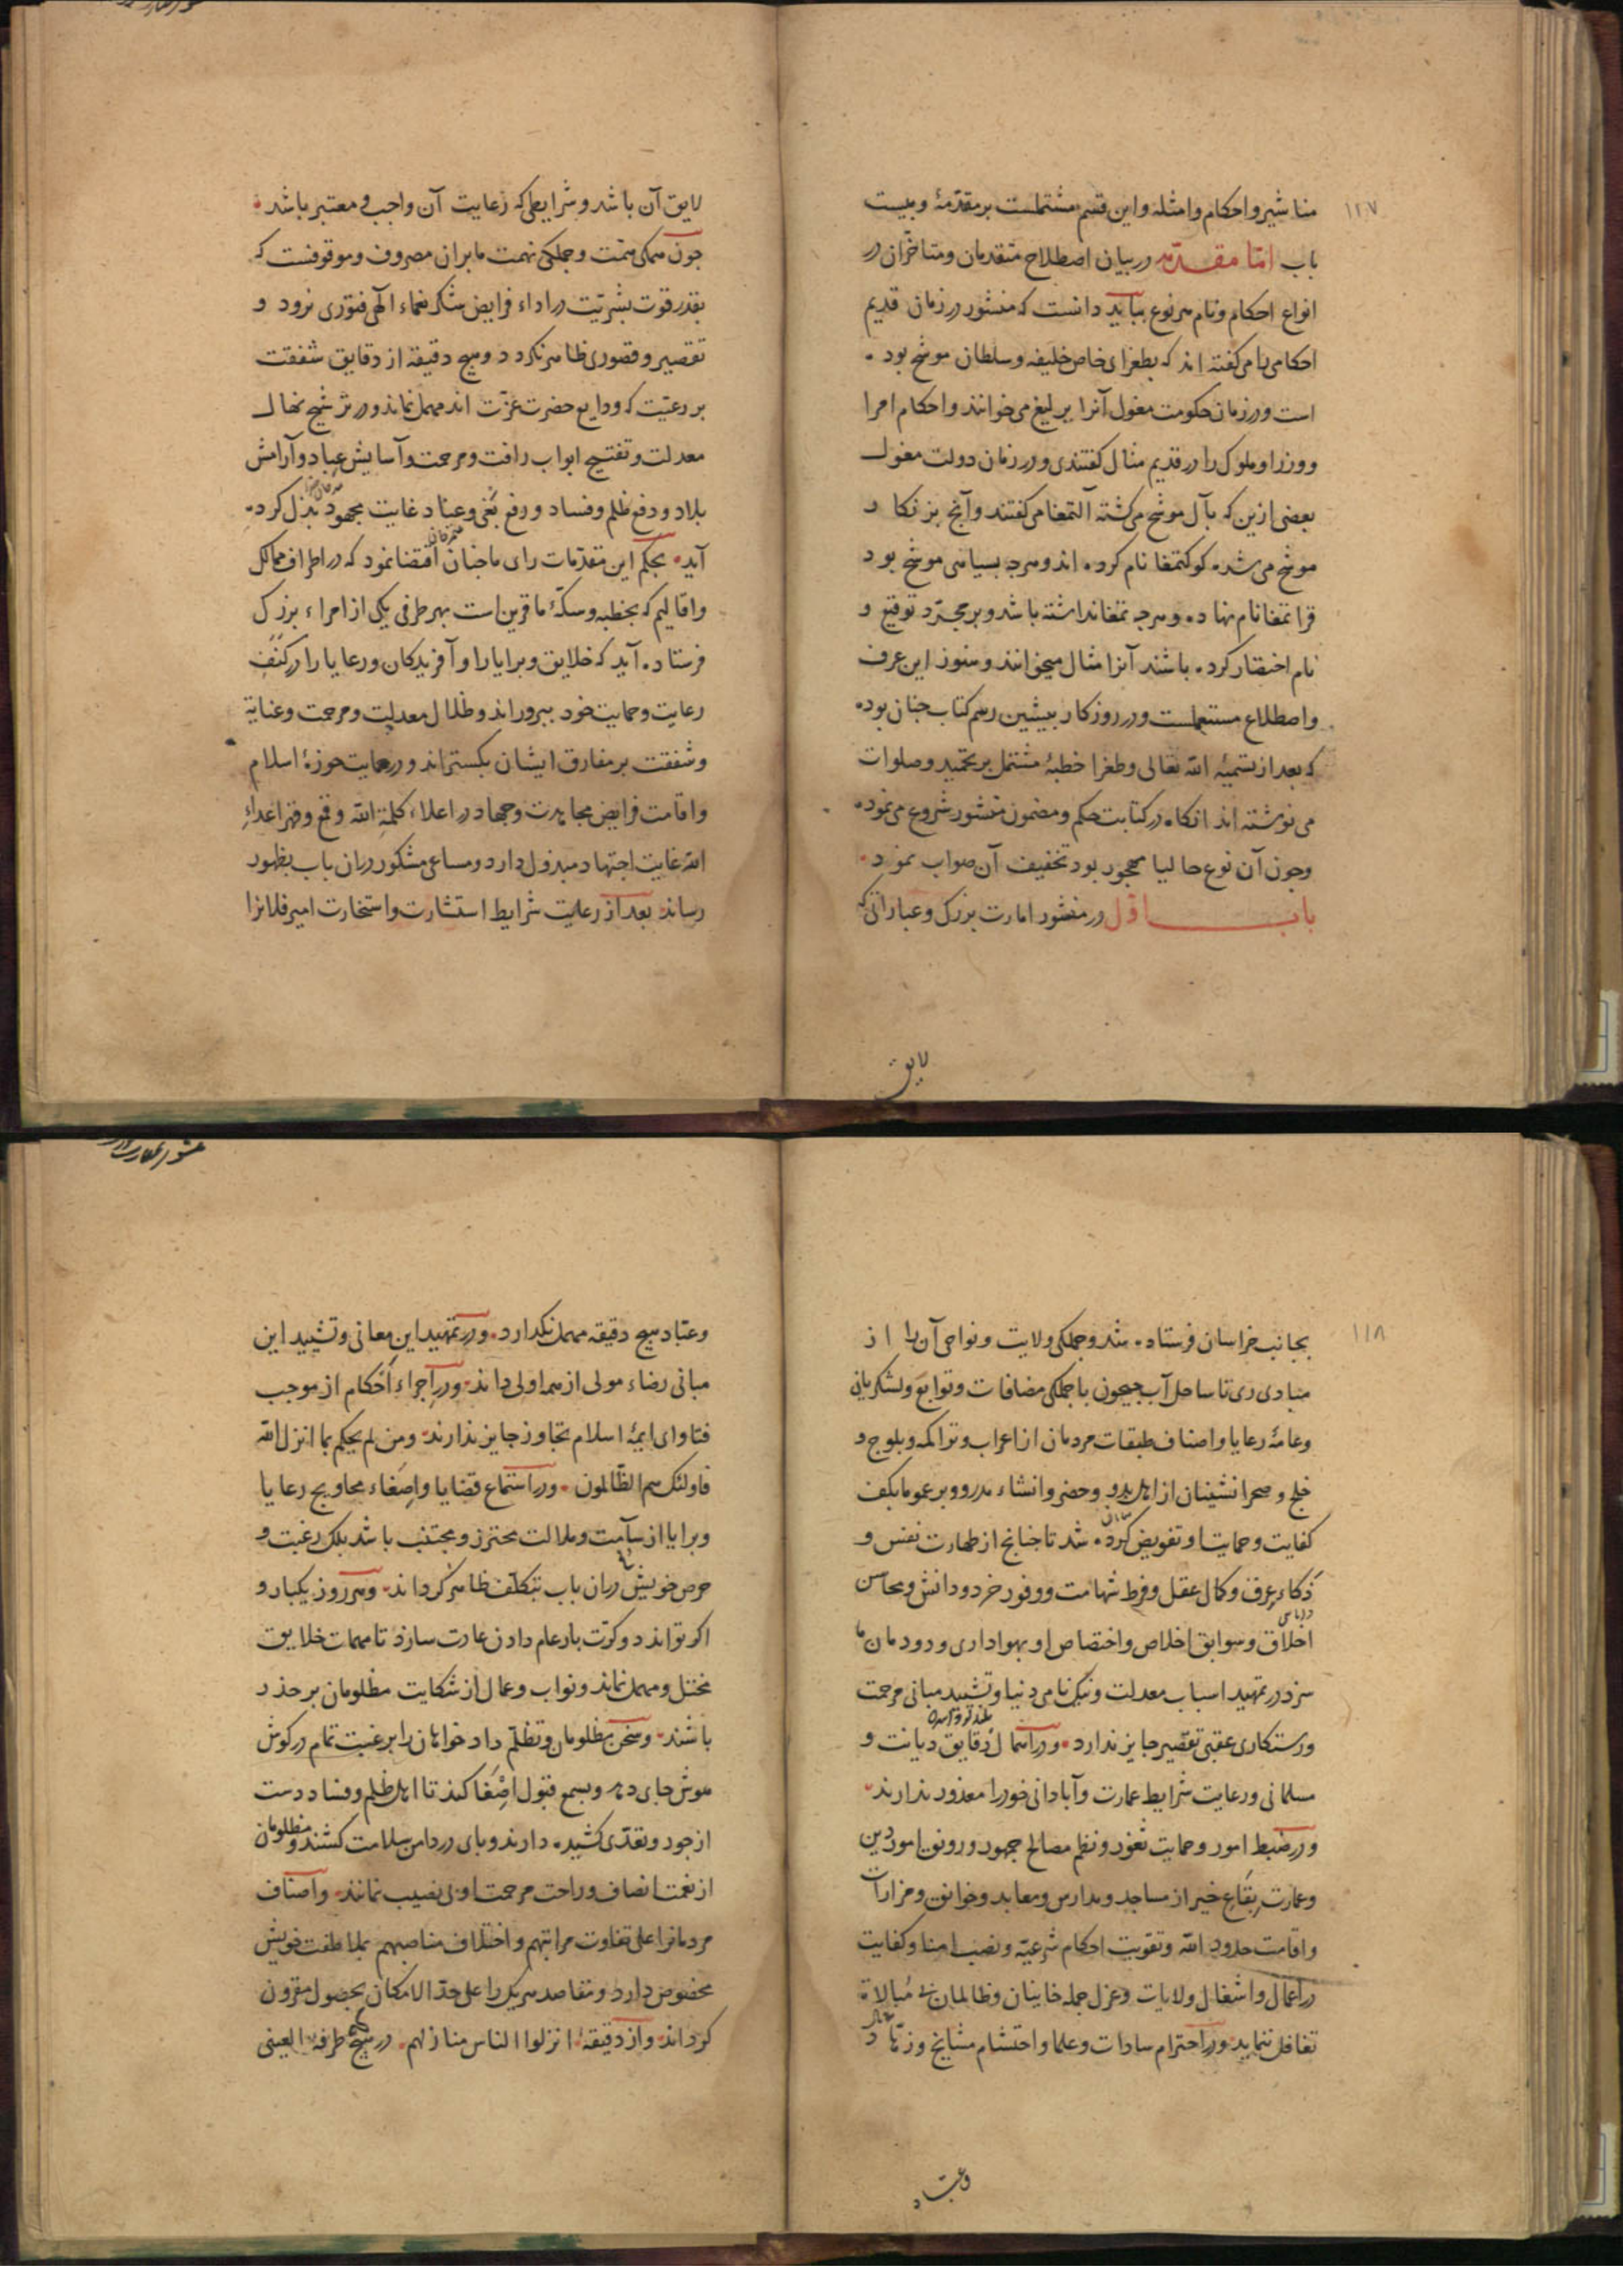 ۱۱۷
مناشیر و احکام و امثله و این قسم مشتملست بر مقدّمهٔ و بیست
باب امّا مقدّمه در بیان اصطلاح متقدمان و متاخران در
انواع احکام و نام هر نوع بباید دانست که منشور در زمان قدیم
احکامی را می گفته اند که بطغرای خاص خلیفه و سلطان موشح بوده
است و در زمان حکومت مغول آنرا یرلیغ می خوانند و احکام امرا
و وزرا و ملوک را در قدیم مثال گفتندی و در زمان دولت مغول
بعضی ازین که بآل موشح می گشته آلتمغا می گفتند و آنچ بز نکار
موشح می شده کوکتمغا نام کرده اند و هرچه بسیاهی موشح بود
قراتمغا نام نهاده و هرچه تمغا نداشته باشد و بر مجرّد توقیع و
نام اختصار کرده باشند آنرا مثال میخوانند و هنوز این عرف
و اصطلاح مستعملست و در روزکار پیشین رسم کتاب جنان بوده
که بعد از تسمیهٔ الله تعالی و طغرا خطبهٔ مشتمل بر تحمید و صلوات
می نوشته اند انکاه در کتابت حکم و مضمون منشور شروع می نموده
و جون آن نوع حالیا مهجور بود تخفیف آن صواب نمود
باب اوّل در منشور امارت بزرک و عباراتی که
لایق
لایق آن باشد و شرایطی که رعایت آن واجب و معتبر باشد
جون همکی همّت و جملکی نهمت ما بران مصروف و موقوفست که
بقدر قوت بشریّت در اداء فرایض شکر نعماء الٓهی فتوری نرود و
تقصیر و قصوری ظاهر نکردد و هیچ دقیقه از دقایق شفقت
بر رعیّت که ودایع حضرت عزّت اند مهمل نماند و در ترشیح نهال
معدلت و تفتیح ابواب رافت و مرحمت و آسایش عباد و آرامش
بلاد و دفع ظلم و فساد و رفع بغی و عناد غایت مجهود بذل کرده
آید بحکم این مقدّمات رای ما جنان اقتضا نمود که در اطراف ممالک
و اقالیم که بخطبه و سکّهٔ ما قرین است بهر طرفی یکی از امراء بزرک
فرستاده آید که خلایق و برایا را و آفریدکان و رعایا را در کنف
رعایت و حمایت خود بپروراند و ظلال معدلت و مرحمت و عنایة
و شفقت بر مفارق ایشان بکستراند و در حمایت حوزهٔ اسلام
و اقامت فرایض مجاهدت و جهاد در اعلاء کلمة الله و قمع و قهر اعداءِ
الله غایت اجتهاد مبذول دارد و مساعی مشکور دران باب بظهور
رساند بعد از رعایت شرایط استشارت و استخارت امیر فلانرا
۱۱۸
بجانب خراسان فرستاده شد و جملکی ولایت و نواحی آن را از
مبادی ری تا ساحل آب جیحون با جملکی مضافات و توابع و لشکریان
و عامّهٔ رعایا و اصناف طبقات مردمان از اعراب و تراکمه و بلوج و
خلج و صحرانشینان از اهل بدو و حضر و انشاء مدر و وبر عموما بکف
کفایت و حمایت او تفویض کرده شد تا جنانج از طهارت نفس و
ذکاءِ عرق و کمال عقل و فرط شهامت و وفور خرد و دانش و محاسن
اخلاق و سوابق اخلاص و اختصاص او بهواداری و دودمان ما
سزد در تمهید اسباب معدلت و نیکنامی دنیا و تشیید مبانی مرحمت
و رستکاری عقبی تقصیر جایز ندارد و در استمال دقایق دیانت و
مسلمانی و رعایت شرایط عمارت و آبادانی خود را معذور ندارند
و در ضبط امور و حمایت ثغور و نظم مصالح جمهور و رونق امور دین
و عمارت بقاع خیر از مساجد و مدارس و معابد و خوانق و مزارات
و اقامت حدود الله و تقویت احکام شرعیّه و نصب امنا و کفایت
در اعمال و اشغال ولایات و عزل جمله خاینان و ظالمان بی مبالاة
تغافل ننماید و در احترام سادات و علما و احتشام مشایخ و زهّاد
وعبّاد
و عبّاد هیچ دقیقه مهمل نکذارد و در تمهید این معانی و تشیید این
مبانی رضاء مولی از همه اولی داند و در اجراءِ احکام از موجب
فتاوای ایمّهٔ اسلام تجاوز جایز ندارند و من لم یحکم بما انزل الله
فاولئک هم الظّالمون و در استماع قضایا و اصغاء محاویج رعایا
و برایا از سآمت و ملالت محترز و مجتنب باشد بلک رغبت و
حرص خویش دران باب بتکلّف ظاهر کرداند و هر روز یکبار و
اکر تواند دو کرّت بار عام دادن عادت سازد تا مهمات خلایق
مختل و مهمل نماند و نواب و عمال از شکایت مظلومان بر حذر
باشند و سخن مظلومان و تظلّم داد خواهان را برغبت تمام در کوش
هوش جای دهد و بسمع قبول اصغا کند تا اهل ظلم و فساد دست
از جور و تعدّی کشیده دارند و پای در دامن سلامت کشند و مظلومان
از نعمت انصاف و راحت مرحمت او بی نصیب نمانند و اصناف
مردمانرا علی تفاوت مراتبهم و اختلاف مناصبهم بملاطفت خویش
مخصوص دارد و مقاصد هر یک را علی حدّ الامکان بحصول مقرون
کرداند و از دقیقهٔ انزلوا الناس منازلهم در هیچ طرفة العینی